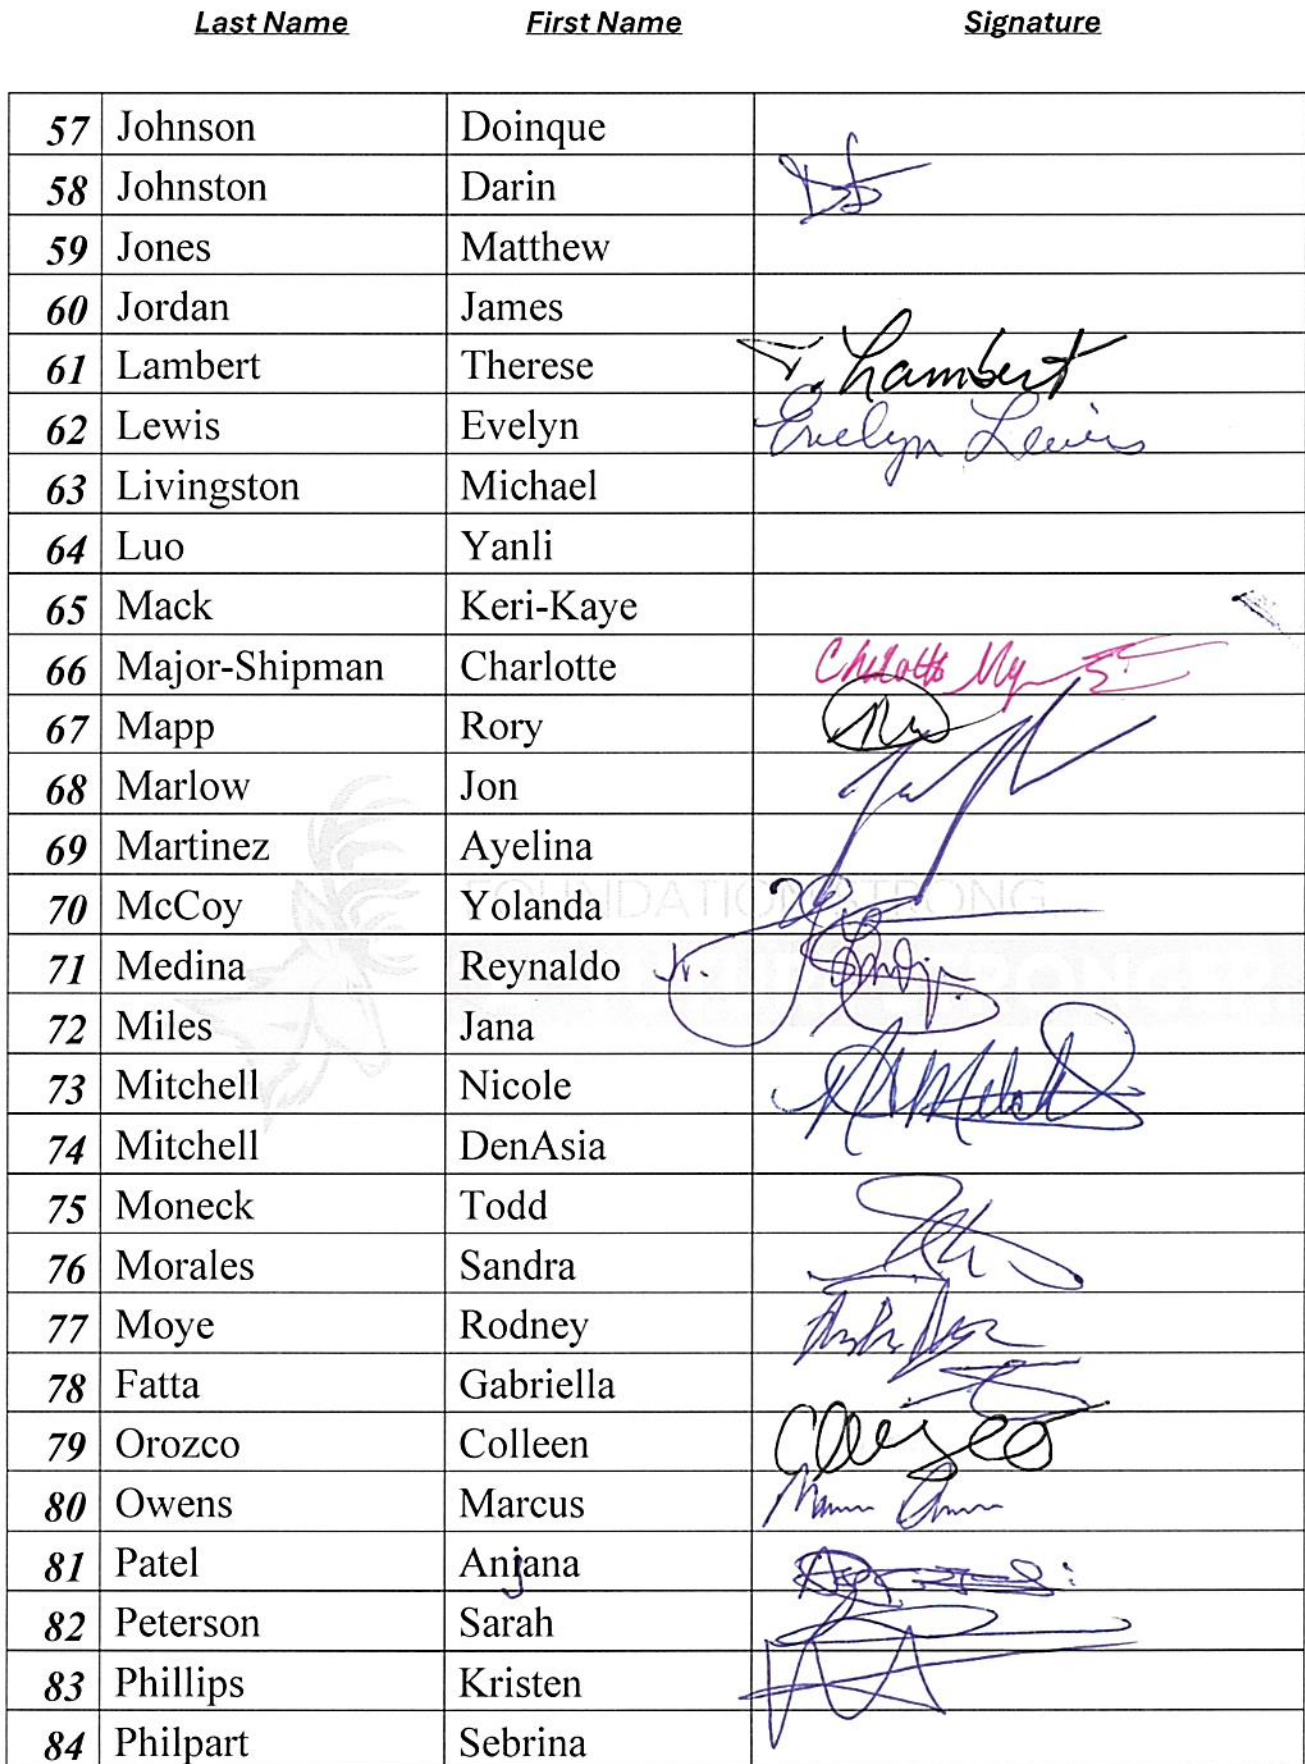 Last Name First Name Signature
57 Johnson Doinque
58 Johnston Darin
59 Jones Matthew
60 Jordan James
61 Lambert Therese T. Lambert
62 Lewis Evelyn Evelyn Lewis
63 Livingston Michael
64 Luo Yanli
65 Mack Keri-Kaye
66 Major-Shipman Charlotte
67 Mapp Rory
68 Marlow Jon
69 Martinez Ayelina
FOUNDATION STRONG
70 McCoy Yolanda
71 Medina Reynaldo Jr.
72 Miles Jana
73 Mitchell Nicole
74 Mitchell DenAsia
75 Moneck Todd
76 Morales Sandra
77 Moye Rodney
78 Fatta Gabriella
79 Orozco Colleen
80 Owens Marcus
81 Patel Anjana
82 Peterson Sarah
83 Phillips Kristen
84 Philpart Sebrina